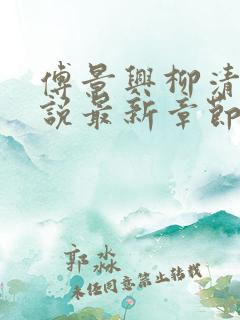 傅景興柳清
說最新章節
郭淼
未经同意禁止转载